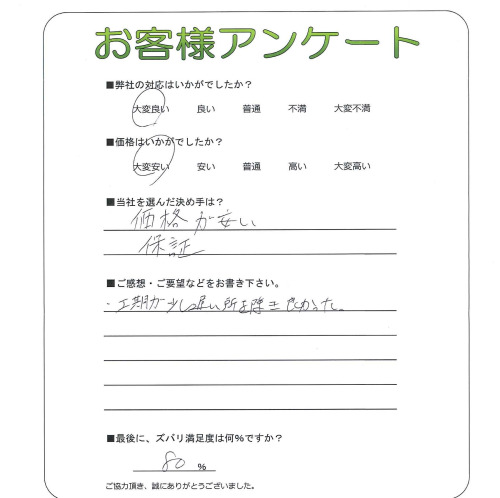 お客様アンケート
■弊社の対応はいかがでしたか？
大変良い 良い 普通 不満 大変不満
■価格はいかがでしたか？
大変安い 安い 普通 高い 大変高い
■当社を選んだ決め手は？
価格が安い
保証
■ご感想・ご要望などをお書き下さい。
・工期が少し遅い所を除き良かった。
■最後に、ズバリ満足度は何％ですか？
80 %
ご協力頂き、誠にありがとうございました。